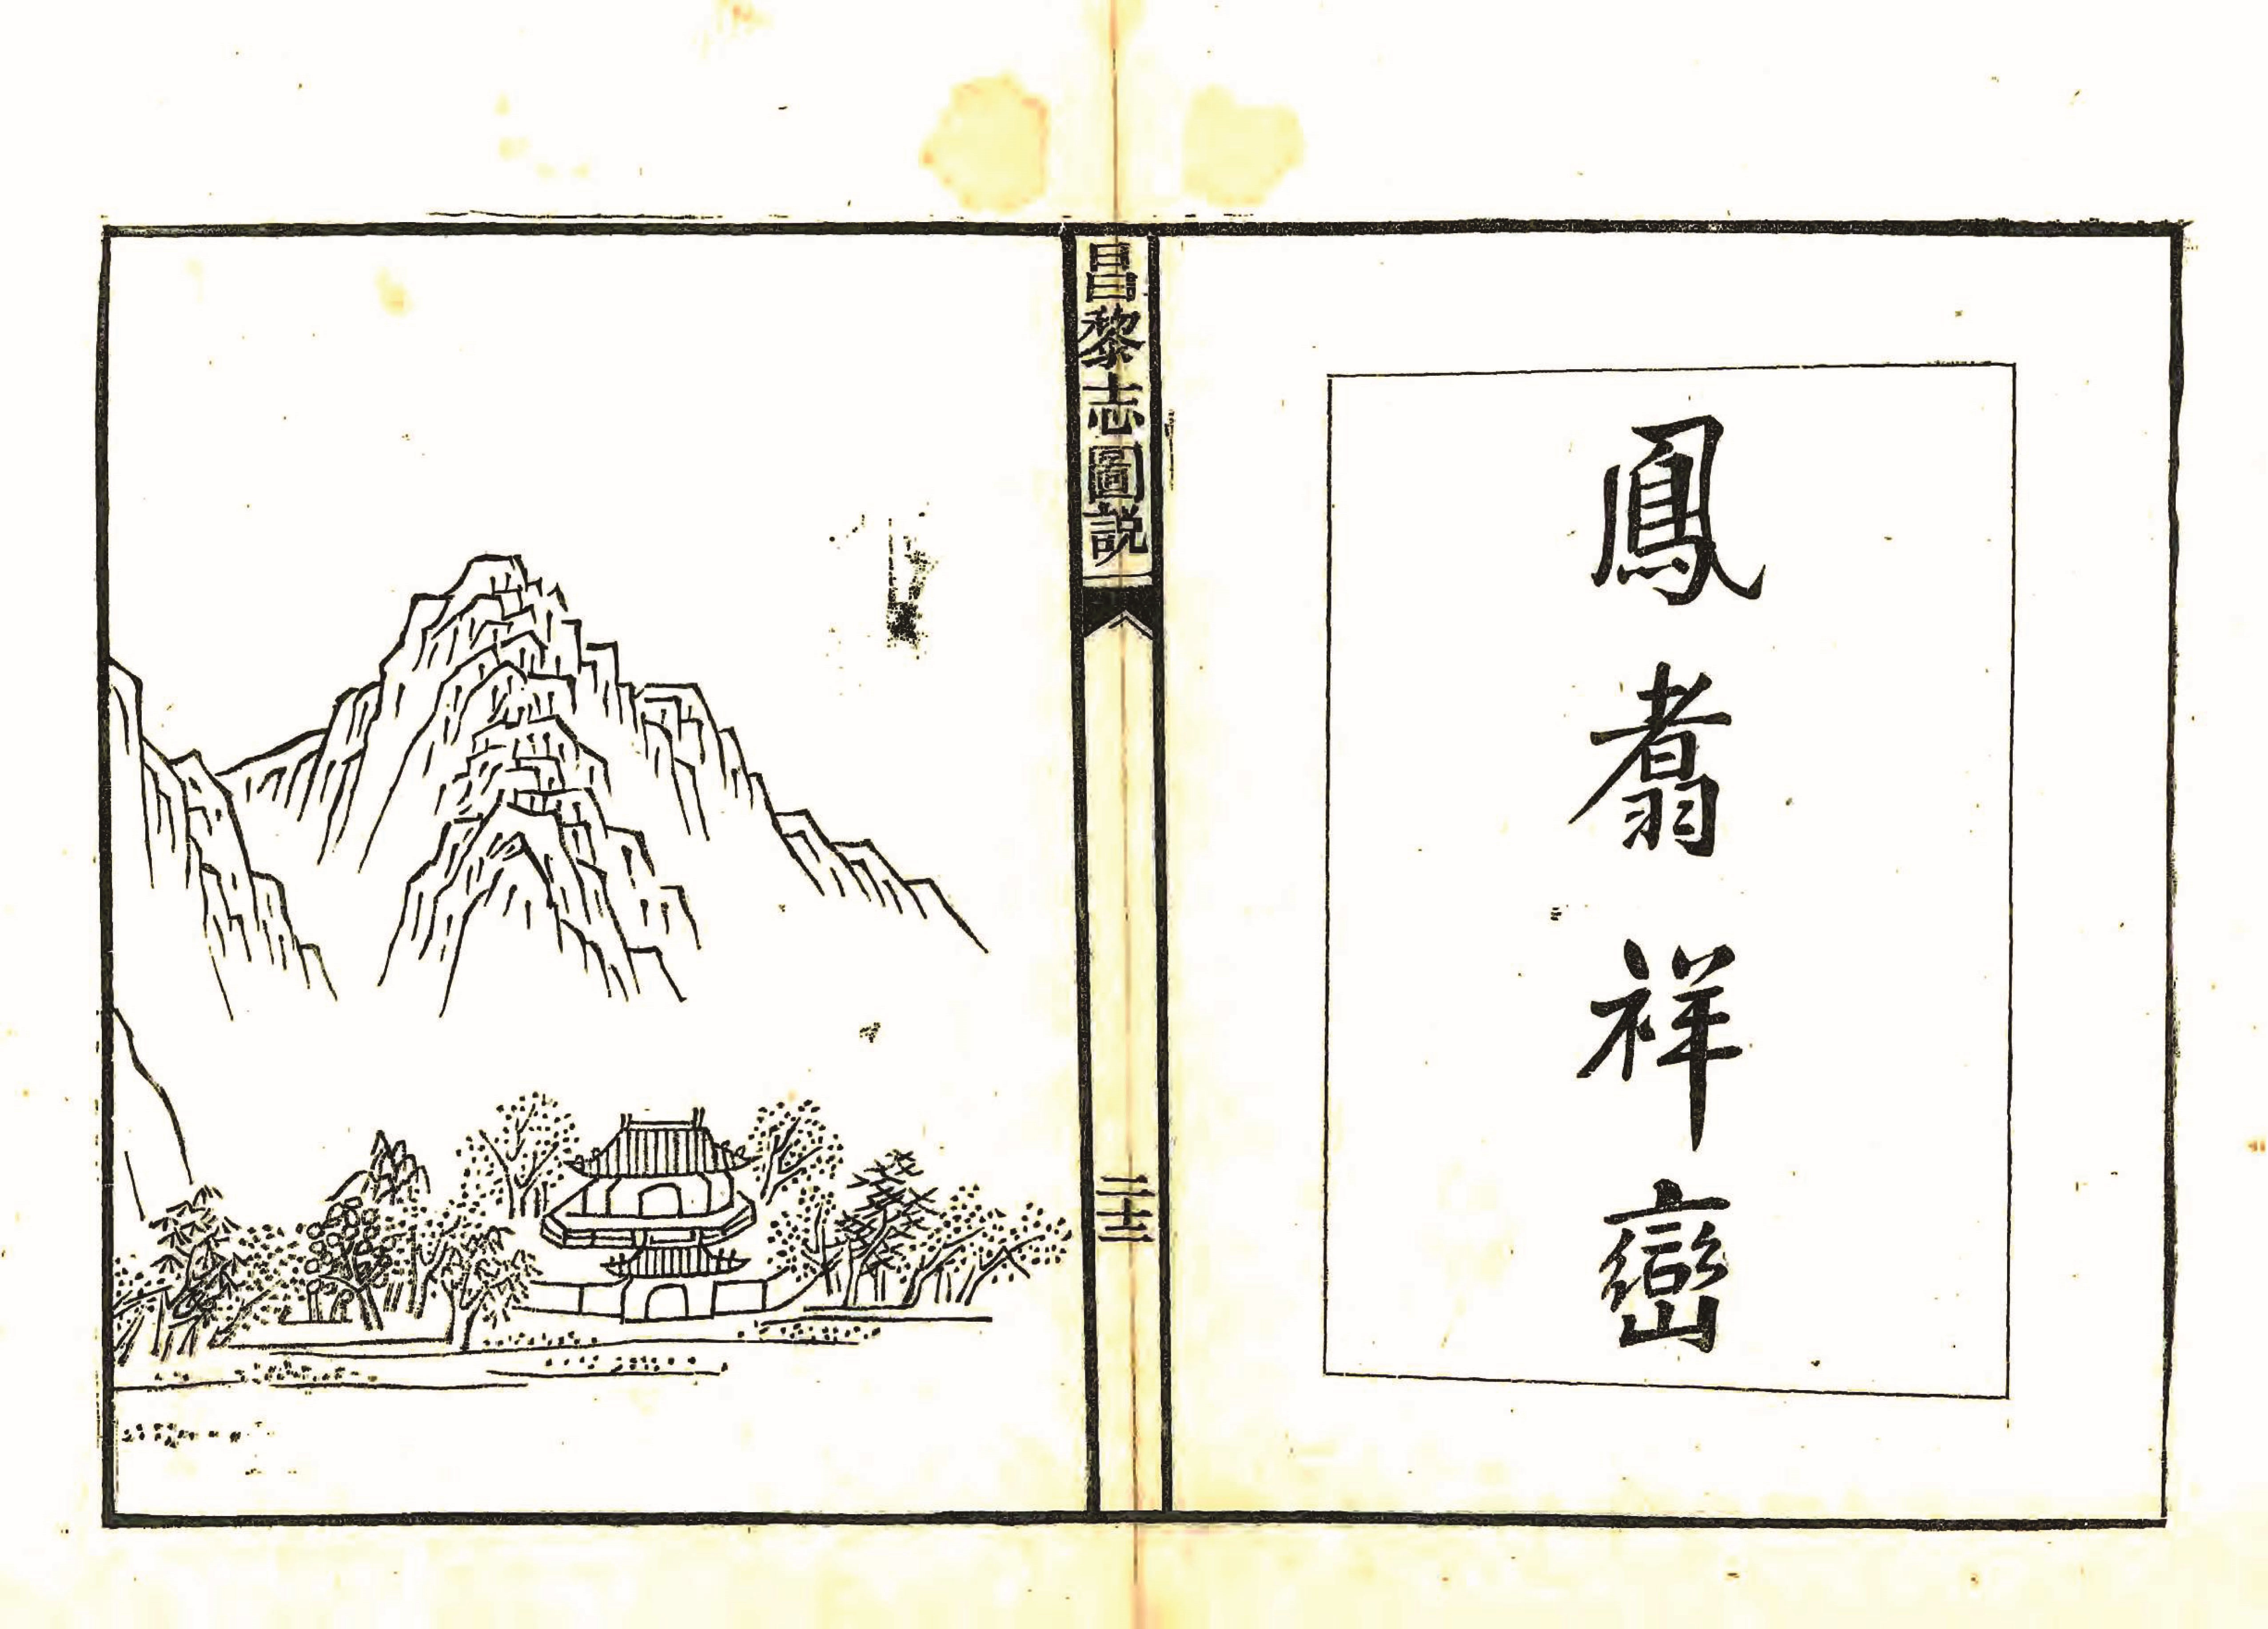 鳳翥祥巒
昌黎志圖説
二十三